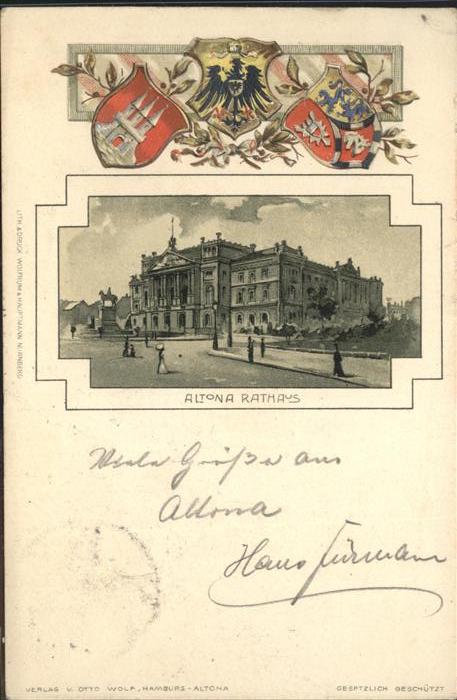 LITH. & DRUCK WOLFRUM & HAUPTMANN NÜRNBERG.
ALTONA RATHAUS
Viele Grüße aus
Altona
Hans
VERLAG V. OTTO WOLF, HAMBURG-ALTONA
GESETZLICH GESCHÜTZT